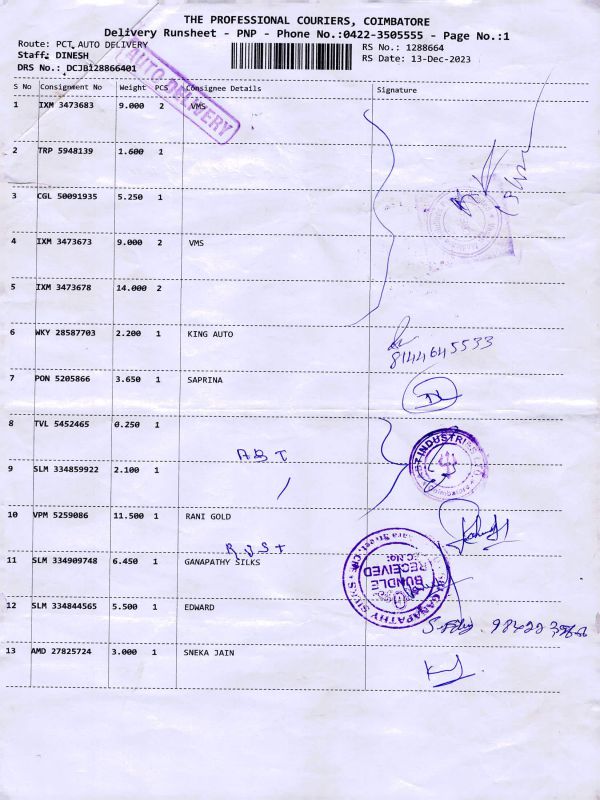 THE PROFESSIONAL COURIERS, COIMBATORE
Delivery Runsheet - PNP - Phone No.:0422-3505555 - Page No.:1
Route: PCT AUTO DELIVERY
RS No.: 1288664
Staff: DINESH
RS Date: 13-Dec-2023
DRS No.: DCJB128866401
AUTO DELIVERY
S No Consignment No Weight PCS Consignee Details Signature
1 IXM 3473683 9.000 2 VMS
2 TRP 5948139 1.600 1
3 CGL 50091935 5.250 1
4 IXM 3473673 9.000 2 VMS
5 IXM 3473678 14.000 2
6 WKY 28587703 2.200 1 KING AUTO
8144645533
7 PON 5205866 3.650 1 SAPRINA
8 TVL 5452465 0.250 1
ABT
INDUSTRIES
9 SLM 334859922 2.100 1
10 VPM 5259086 11.500 1 RANI GOLD
11 SLM 334909748 6.450 1 GANAPATHY SILKS
BUNDLE
RECEIVED
GANAPATHY SILKS
12 SLM 334844565 5.500 1 EDWARD
13 AMD 27825724 3.000 1 SNEKA JAIN